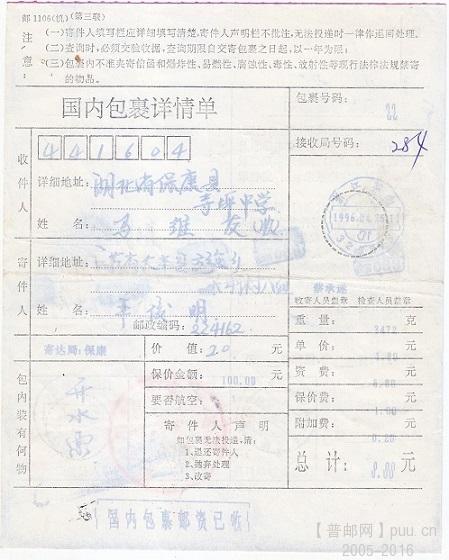 邮1106(机)(第三联)
注意：
(一)寄件人填写栏应详细填写清楚，寄件人声明栏不批注，无法投递时一律作退回处理。
(二)查询时，必须交验收据，查询期限自交寄包裹之日起，以一年为限；
(三)包裹内不准夹寄信函和爆炸性、易燃性、腐蚀性、毒性、放射性等现行法律法规禁寄的物品。
国内包裹详情单
包裹号码：
22
441604
接收局号码：
284
收件人
详细地址：湖北省保康县
寺坪中学
姓名：马维友 收
1996
01
寄件人
详细地址：
姓名：
邮政编码：224162
收寄人员盖章 检查人员盖章
重量： 克
单价： 元
资费： 元
保价费： 元
附加费： 0.20 元
总计： 元
寄达局：保康
价值：20 元
保价金额： 100.00 元
要否航空：
寄件人声明
如包裹无法投递，请：
1、退还寄件人
2、抛弃处理
3、改寄
包内装有何物
开水
国内包裹邮资已收
【普邮网】puu.cn
2005-2016